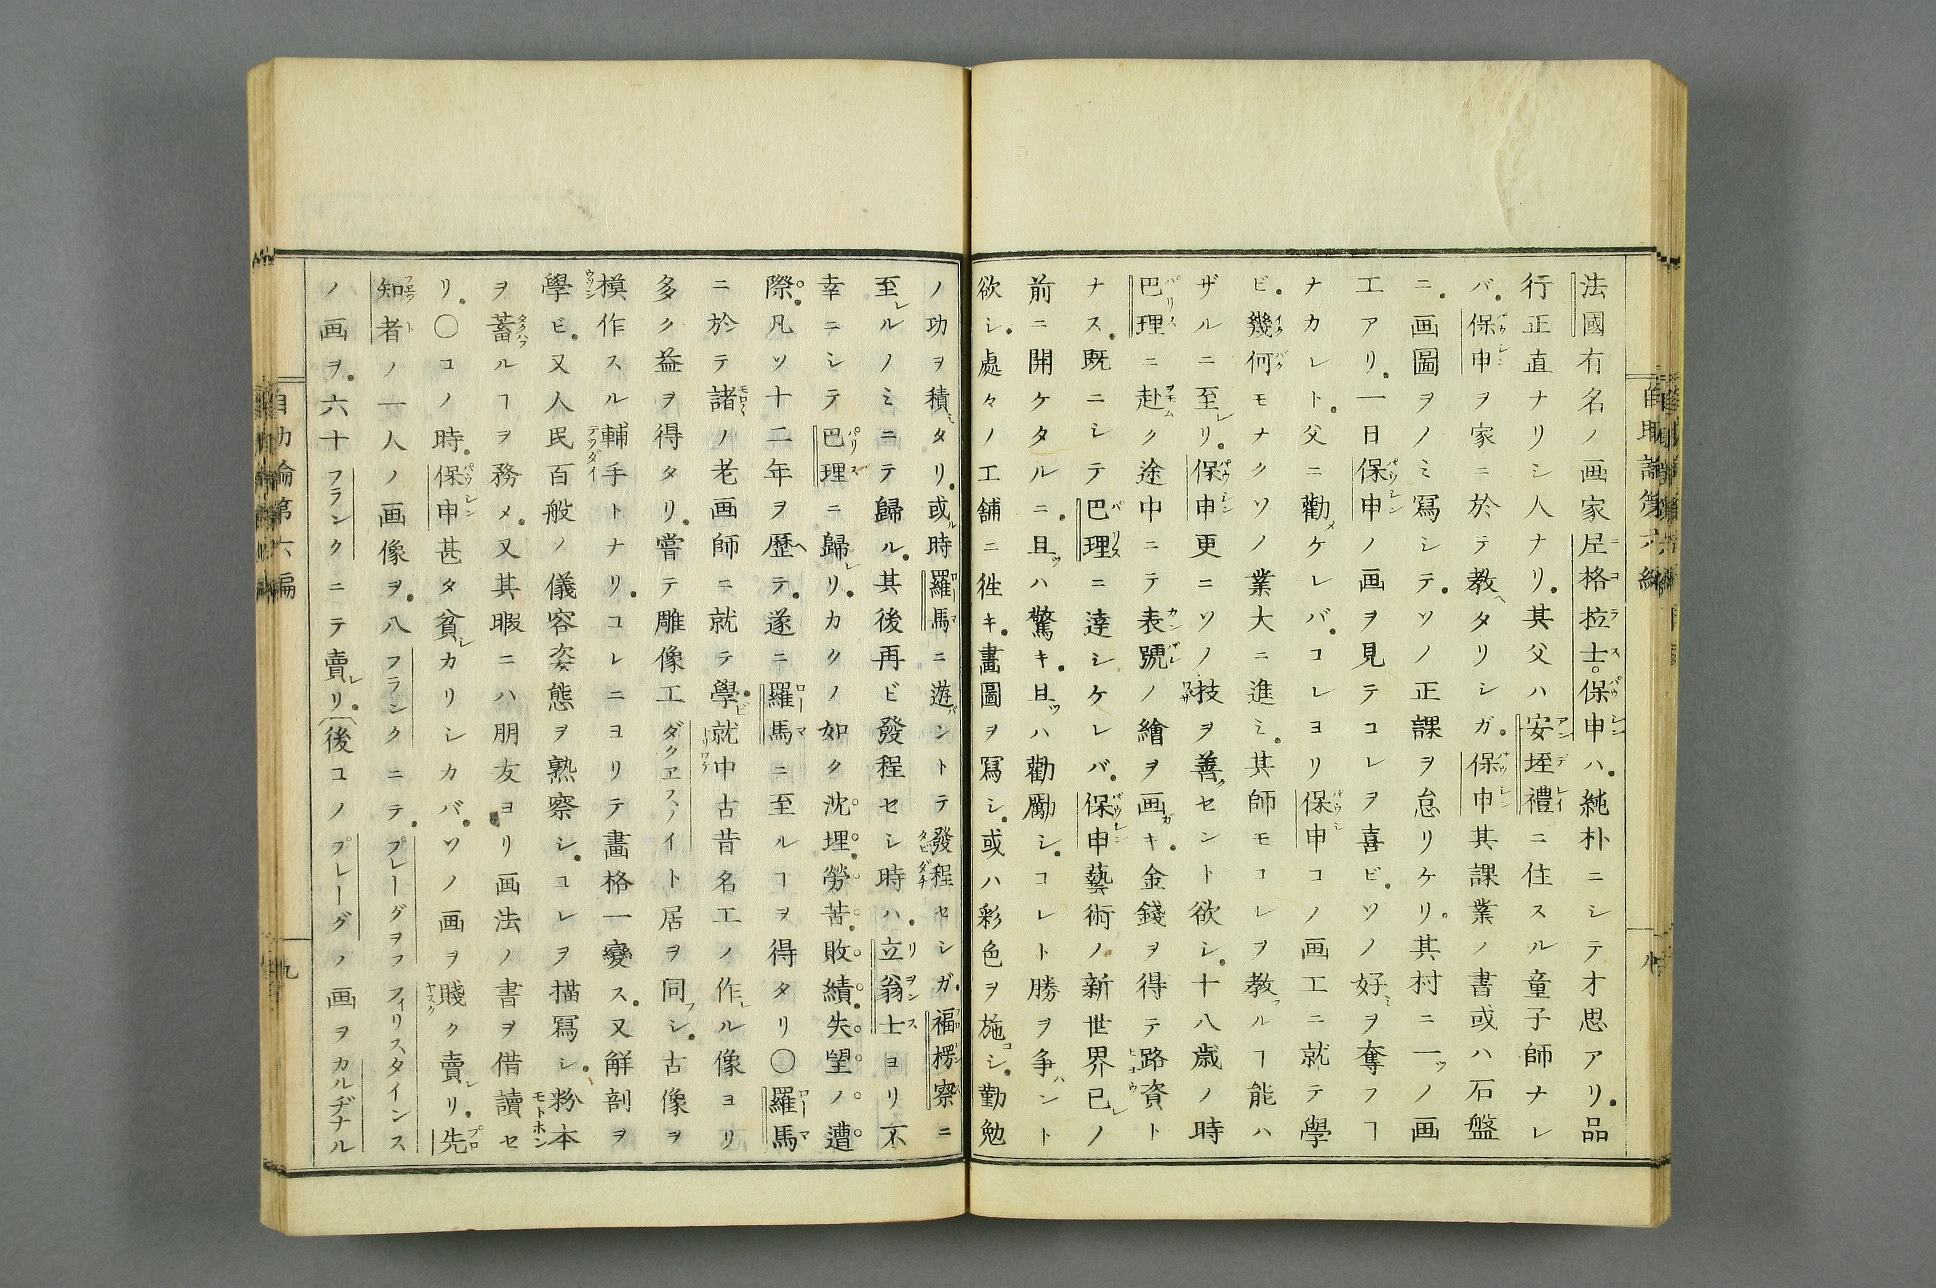 法國有名ノ画家尼格拉士。保申ハ。純朴ニシテオ思アリ。品
行正直ナリシ人ナリ。其父ハ安垤禮ニ住スル童子師ナレ
バ。保申ヲ家ニ於テ教ヘタリシガ。保申其課業ノ書或ハ石盤
ニ。画圖ヲノミ寫シテ。ソノ正課ヲ怠リケリ。其村ニ一ツノ画
工アリ。一日保申ノ画ヲ見テコレヲ喜ビ。ソノ好ミヲ奪フヿ
ナカレト。父ニ勸メケレバ。コレヨリ保申コノ画工ニ就テ學
ビ。幾何モナクソノ業大ニ進ミ。其師モコレヲ教フルヿ能ハ
ザルニ至レリ。保申更ニソノ技ヲ善クセント欲シ。十八歲ノ時
巴理ニ赴ク途中ニテ表號ノ繪ヲ画キ。金錢ヲ得テ路資ト
ナス。既ニシテ巴理ニ達シケレバ。保申藝術ノ新世界已レノ
前ニ開ケタルニ。且ツハ驚キ。且ツハ勸勵シ。コレト勝ヲ爭ハント
欲シ。處々ノ工舗ニ徃キ。畫圖ヲ寫シ。或ハ彩色ヲ施コシ。勤勉
ノ功ヲ積ミタリ。或ル時羅馬ニ遊バントテ發程セシガ。福楞察ニ
至レルノミニテ歸ル。其後再ビ發程セシ時ハ。立翁士ヨリ不
幸ニシテ巴理ニ歸レリ。カクノ如ク沈埋。勞苦。敗績。失望ノ遭
際。凡ソ十二年ヲ歷ヘテ。遂ニ羅馬ニ至ルヿヲ得タリ〇羅馬
ニ於テ諸ノ老画師ニ就テ學ビ。就中古昔名工ノ作レル像ヨリ
多ク益ヲ得タリ。嘗テ雕像工ダクヱスノイト居ヲ同フシ。古像ヲ
模作スル輔手トナリ。コレニヨリテ畵格一變ス。又解剖ヲ
學ビ。又人民百般ノ儀容姿態ヲ熟察シ。コレヲ描寫シ。粉本
ヲ蓄フルヿヲ務メ。又其暇ニハ朋友ヨリ画法ノ書ヲ借讀セ
リ。〇コノ時。保申甚タ貧シカリシカバ。ソノ画ヲ賤ク賣レリ。先
知者ノ一人ノ画像ヲ。八フランクニテ。プレーグヲフフィリスタインス
ノ画ヲ。六十フランクニテ賣レリ。(後コノプレーグノ画ヲカルヂナル
自助論第六編
八
自助論第六編
九